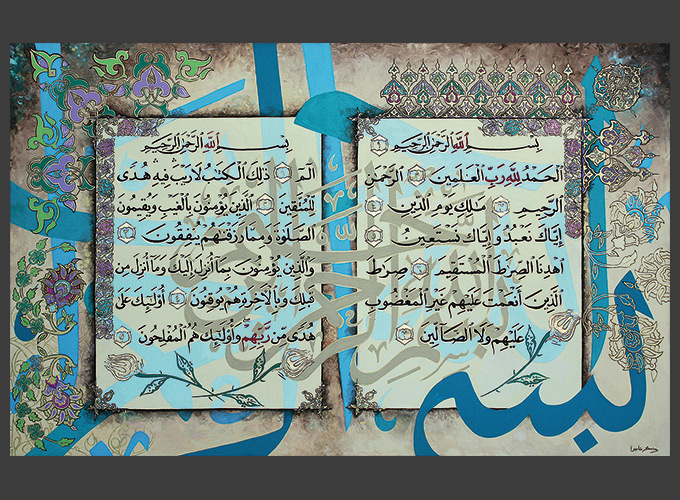 بِسْمِ اللَّهِ الرَّحْمَنِ الرَّحِيمِ
الْحَمْدُ لِلَّهِ رَبِّ الْعَلَمِينَ الرَّحْمَنِ
الرَّحِيمِ مَلِكِ يَوْمِ الدِّينِ
إِيَّاكَ نَعْبُدُ وَإِيَّاكَ نَسْتَعِينُ
اهْدِنَا الصِّرَطَ الْمُسْتَقِيمَ صِرَطَ
الَّذِينَ أَنْعَمْتَ عَلَيْهِمْ غَيْرِ الْمَغْضُوبِ
عَلَيْهِمْ وَلَا الضَّالِّينَ
بِسْمِ اللَّهِ الرَّحْمَنِ الرَّحِيمِ
الم ذَلِكَ الْكِتَبُ لَا رَيْبَ فِيهِ هُدًى
لِلْمُتَّقِينَ الَّذِينَ يُؤْمِنُونَ بِالْغَيْبِ وَيُقِيمُونَ
الصَّلَوةَ وَمِمَّا رَزَقْنَهُمْ يُنْفِقُونَ
وَالَّذِينَ يُؤْمِنُونَ بِمَا أُنْزِلَ إِلَيْكَ وَمَا أُنْزِلَ مِنْ
قَبْلِكَ وَبِالْآخِرَةِ هُمْ يُوقِنُونَ أُولَئِكَ عَلَى
هُدًى مِنْ رَبِّهِمْ وَأُولَئِكَ هُمُ الْمُفْلِحُونَ
بسم